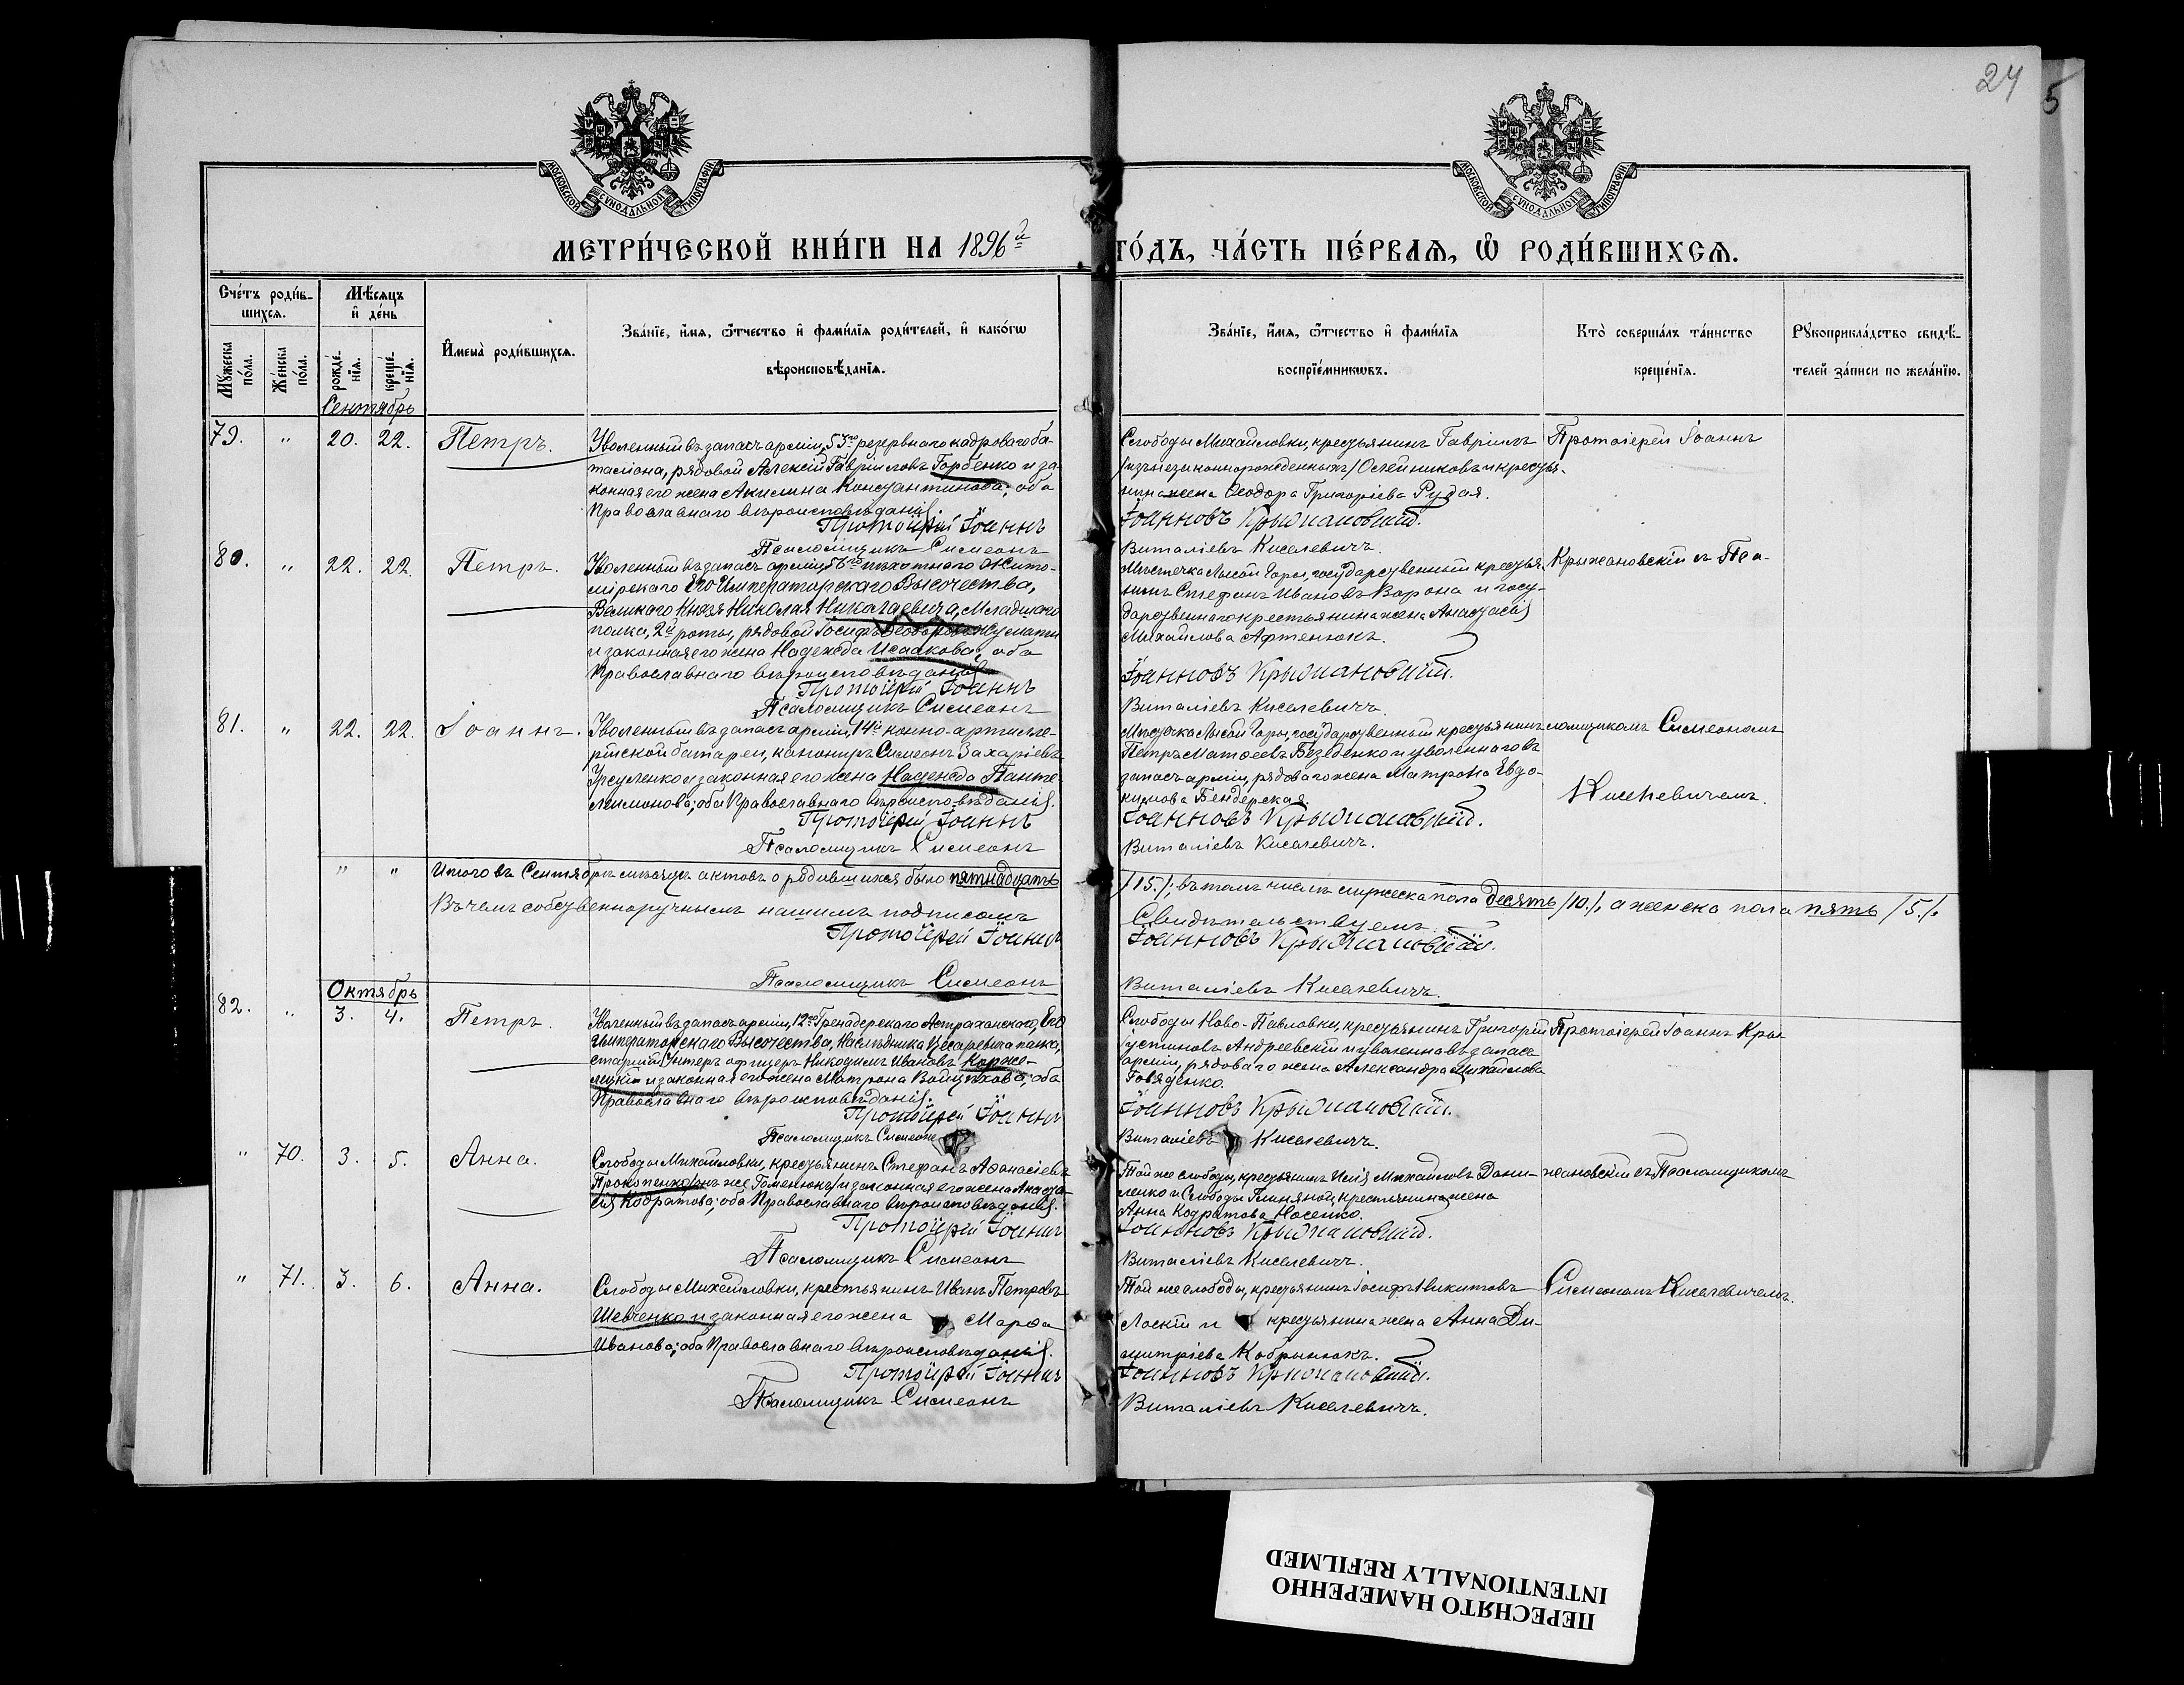 24
5
МОСКОВСКОЙ СѴНОДАЛЬНОЙ ТИПОГРАФІИ
МОСКОВСКОЙ СѴНОДАЛЬНОЙ ТИПОГРАФІИ
МЕТРИ́ЧЕСКОЙ КНИ́ГИ НА 1896й
ГО́ДЪ, ЧА́СТЬ ПЕ́РВАѦ, Ѡ҆ РОДИ́ВШИХСѦ.
Сче́тъ роди́в-
шихсѧ.
Мѣ́сяцъ
и҆ де́нь
Му́жеска по́ла.
Же́нска по́ла.
рожде́-
нїѧ.
креще́-
нїѧ.
И҆мена̀ роди́вшихсѧ.
Зва́нїе, и҆́мѧ, ѻ҆́тчество и҆ фами́лїѧ роди́телей, и҆ како́гѡ
вѣроисповѣ́данїѧ.
Зва́нїе, и҆́мѧ, ѻ҆́тчество и҆ фами́лїѧ
воспрїе́мникѡвъ.
Кто̀ соверша́лъ та́инство
креще́нїѧ.
Рꙋкоприкла́дство свидѣ́-
телей за́писи по жела́нїю.
Сентябрь
79. " 20. 22. Петръ.
Уволенный въ запасъ арміи, 53го резервнаго кадроваго ба-
таліона, рядовой Алексій Гавріиловъ Горбенко и за-
конная его жена Акилина Константинова; оба
Православнаго вѣроисповѣданія.
Протоіерей Іоаннъ
Псаломщикъ Симеонъ
Слободы Михайловки, крестьянинъ Гавріилъ
/изъ незаконнорожденныхъ/ Олейниковъ и крестья-
нина жена Ѳеодора Григоріева Рудая.
Іоанновъ Крыжановскій.
Виталіевъ Киселевичъ.
Протоіерей Іоаннъ
80. " 22. 22. Петръ.
Уволенный въ запасъ арміи, 56го пѣхотнаго Жито-
мірскаго Его Императорскаго Высочества,
Великаго Князя Николая Николаевича, Младшаго
полка, 2й роты, рядовой Іосифъ Ѳеодоровъ
и законная его жена Надежда Исаакова; оба
Православнаго вѣроисповѣданія.
Протоіерей Іоаннъ
Псаломщикъ Симеонъ
Мѣстечка Лысой Горы, государственный крестья-
нинъ Стефанъ Ивановъ Ворона и госу-
дарственнаго крестьянина жена Анастасія
Михайлова Афтенюкъ.
Іоанновъ Крыжановскій.
Виталіевъ Киселевичъ.
Крыжановскій съ Пса-
81. " 22. 22. Іоаннъ.
Уволенный въ запасъ арміи, 14й конно-артилле-
рійской батареи, канониръ Симеонъ Захаріевъ
и законная его жена Надежда Панте-
леимонова; оба Православнаго вѣроисповѣданія.
Протоіерей Іоаннъ
Псаломщикъ Симеонъ
Мѣстечка Лысой Горы, государственный крестьянинъ
Петръ Матѳеевъ и уволеннаго въ
запасъ арміи, рядоваго жена Матрона Евдо-
кимова Бендерская.
Іоанновъ Крыжановскій.
Виталіевъ Киселевичъ.
ломщикомъ Симеономъ
Киселевичемъ.
" " Итого въ Сентябрѣ мѣсяцѣ актовъ о родившихся было пятнадцать
/15./; въ томъ числѣ мужеска пола десять /10./, а женска пола пять /5./.
Въ чемъ собственноручнымъ нашимъ подписомъ
Свидѣтельствуемъ.
Протоіерей Іоаннъ
Іоанновъ Крыжановскій.
Псаломщикъ Симеонъ
Виталіевъ Киселевичъ.
Октябрь
82. " 3. 4. Петръ.
Уволенный въ запасъ арміи, 12го Гренадерскаго Астраханскаго, Его
Императорскаго Высочества, Наслѣдника Цесаревича полка,
старшій Унтеръ-офицеръ Никодимъ Ивановъ Корже-
и законная его жена Матрона Войцѣхова; оба
Православнаго вѣроисповѣданія.
Протоіерей Іоаннъ
Псаломщикъ Симеонъ
Слободы Ново-Павловки, крестьянинъ Григорій
Іустиновъ Андреевскій и уволеннаго въ запасъ
арміи, рядоваго жена Александра Михайлова
Говяденко.
Іоанновъ Крыжановскій.
Виталіевъ Киселевичъ.
Протоіерей Іоаннъ Кры-
" 70. 3. 5. Анна.
Слободы Михайловки, крестьянинъ Стефанъ Аѳанасіевъ
Прокопенко /онъ же Гоменюкъ/ и законная его жена Анаста-
сія Кодратова; оба Православнаго вѣроисповѣданія.
Протоіерей Іоаннъ
Псаломщикъ Симеонъ
Той же слободы, крестьянинъ Илія Михайловъ Дани-
ленко и Слободы Глиняной, крестьянина жена
Анна Кодратова Носенко.
Іоанновъ Крыжановскій.
Виталіевъ Киселевичъ.
жановскій съ Псаломщикомъ
" 71. 3. 6. Анна.
Слободы Михайловки, крестьянинъ Иванъ Петровъ
Шевченко и законная его жена Марѳа
Иванова; оба Православнаго вѣроисповѣданія.
Протоіерей Іоаннъ
Псаломщикъ Симеонъ
Той же слободы, крестьянинъ Іосифъ Никитовъ
Лоскій и крестьянина жена Анна Ди-
митріева Кобрынюкъ.
Іоанновъ Крыжановскій.
Виталіевъ Киселевичъ.
Симеономъ Киселевичемъ.
ПЕРЕСНЯТО НАМЕРЕННО
INTENTIONALLY REFILMED